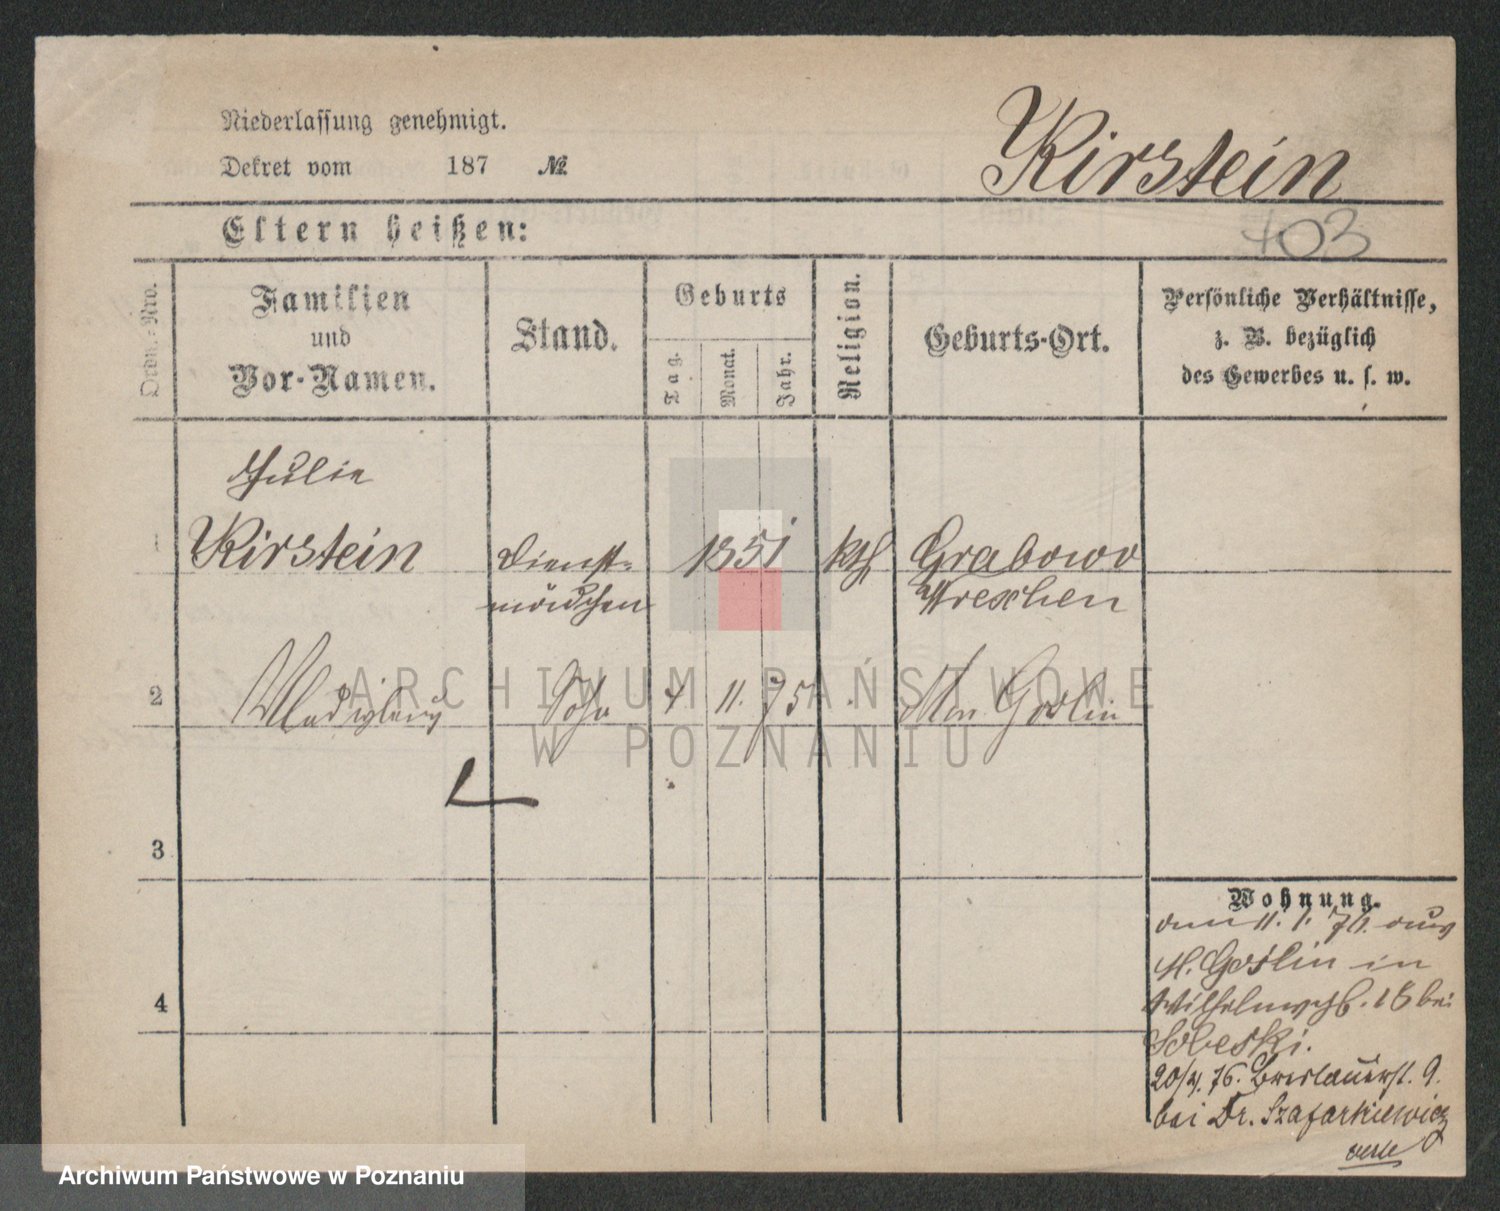 Niederlassung genehmigt.
Dekret vom 187 №
Kirstein
403
Eltern heißen:
Ordn.-Nro.
Familien
und
Vor-Namen.
Stand.
Geburts
Tag.
Monat.
Jahr.
Religion.
Geburts-Ort.
Persönliche Verhältnisse,
z. B. bezüglich
des Gewerbes u. s. w.
Julie
1 Kirstein Dienst- 1851 kth Grabowo
mädchen Wreschen
2 Sohn 4 11. 75 Mur. Goslin
ARCHIWUM PAŃSTWOWE
W POZNANIU
3
4
Wohnung.
den 11. 1. 76. aus
M. Goslin in
Wilhelmspl. 16 bei
Sobeski.
20/4. 76. Breslauerst. 9.
bei Dr. Szafarkiewicz
Archiwum Państwowe w Poznaniu